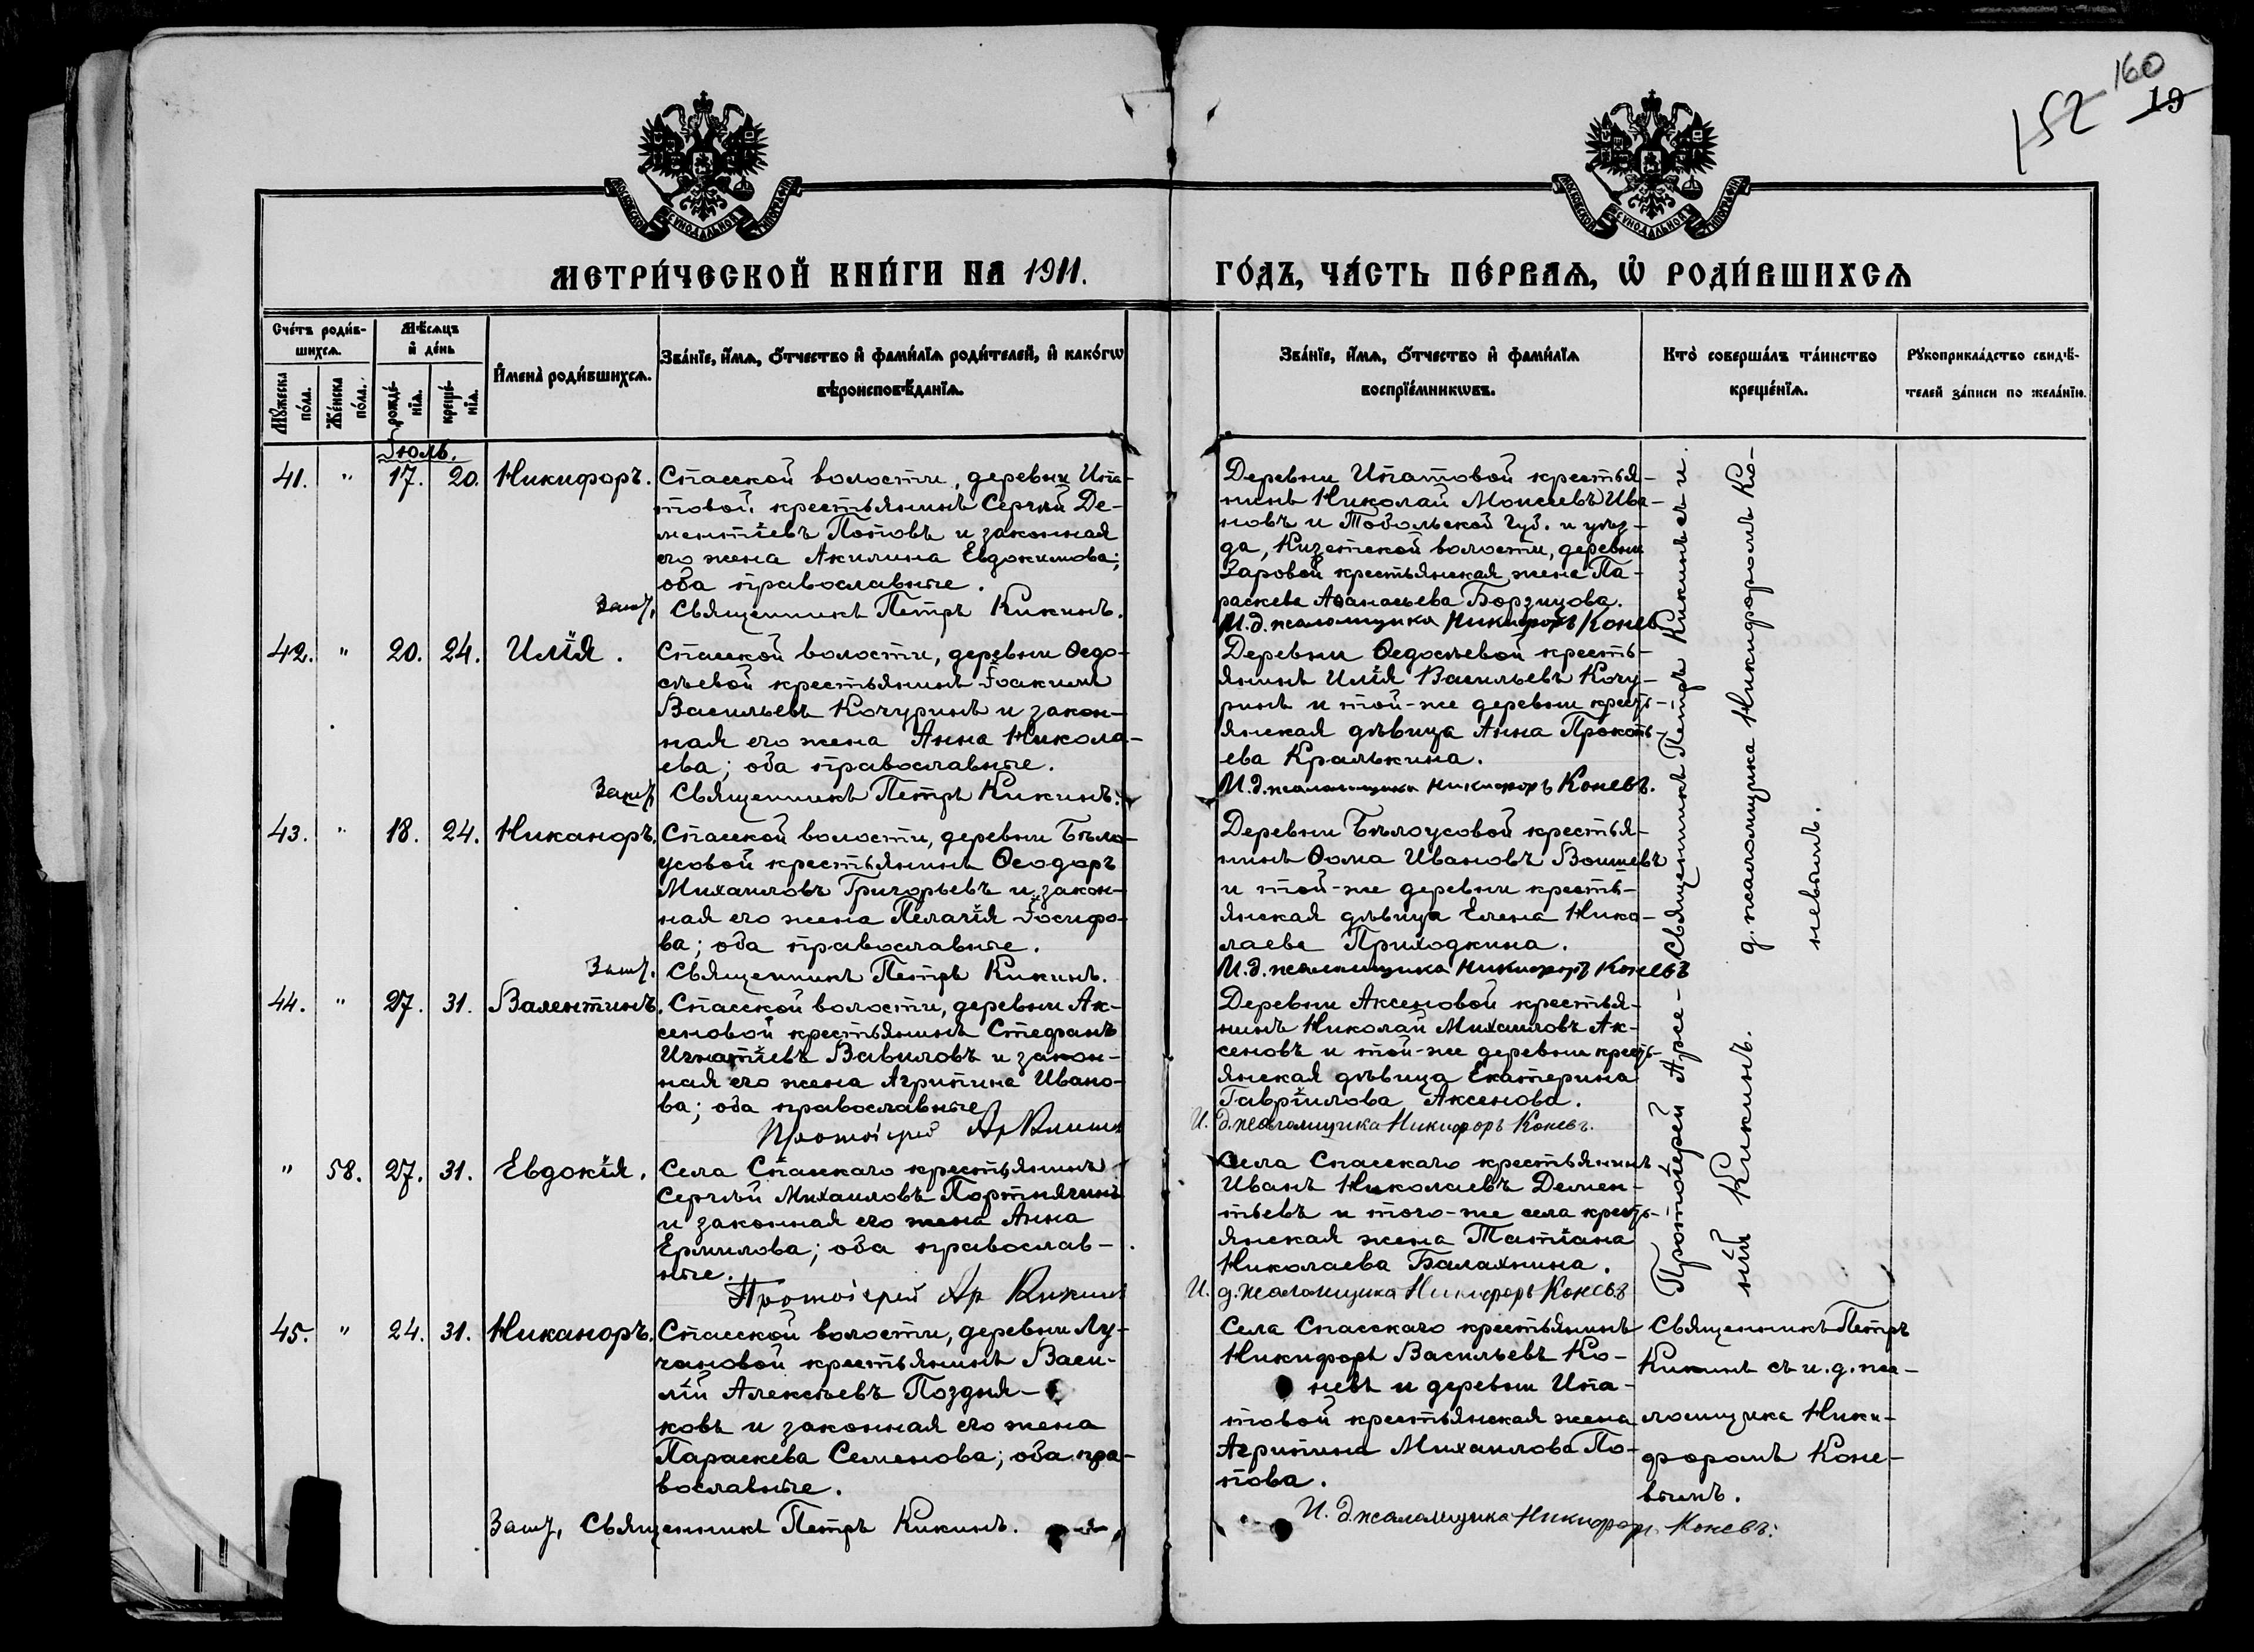 160
152
19
МОСКОВСКОЙ СѴНОДАЛЬНОЙ ТИПОГРАФІИ
МОСКОВСКОЙ СѴНОДАЛЬНОЙ ТИПОГРАФІИ
МЕТРИ́ЧЕСКОЙ КНИ́ГИ НА 1911.
ГО́ДЪ, ЧА́СТЬ ПЕ́РВАѦ, Ѿ РОДИ́ВШИХСѦ
Сче́тъ роди́в-
шихсѧ.
Мꙋ́жеска по́ла.
Же́нска по́ла.
Мѣ́сѧцъ
и҆ де́нь
рожде́-нїѧ.
креще́-нїѧ.
И҆мена̀ роди́вшихсѧ.
Зва́нїе, и҆́мѧ, ѻ҆́тчество и҆ фами́лїѧ роди́телей, и҆ како́гѡ
вѣроисповѣ́данїѧ.
Зва́нїе, и҆́мѧ, ѻ҆́тчество и҆ фами́лїѧ
воспрїе́мникѡвъ.
Кто̀ соверша́лъ та́инство
креще́нїѧ.
Рꙋкоприкла́дство свидѣ́-
телей за́писи по жела́нїю.
Іюль.
41. " 17. 20. Никифоръ.
Спасской волости, деревни Ипа-
товой крестьянинъ Сергѣй Де-
ментіевъ Поповъ и законная
его жена Акилина Евдокимова;
оба православные.
Священникъ Петръ Кикинъ.
Деревни Ипатовой крестья-
нинъ Николай Моисеевъ Ива-
новъ и Тобольской губ. и уѣз-
да, Кизетской волости, деревни
Заровой крестьянская жена Па-
раскева Аѳанасьева Борзицова.
И.д. псаломщика Никифоръ Коневъ
42. " 20. 24. Илія.
Спасской волости, деревни Ѳедо-
сѣевой крестьянинъ Іоакимъ
Васильевъ Кочуринъ и закон-
ная его жена Анна Никола-
ева; оба православные.
Священникъ Петръ Кикинъ.
Деревни Ѳедосѣевой кресть-
янинъ Илія Васильевъ Кочу-
ринъ и той-же деревни кресть-
янская дѣвица Анна Прокопь-
ева Кралькина.
И.д. псаломщика Никифоръ Коневъ.
43. " 18. 24. Никаноръ.
Спасской волости, деревни Бѣло-
усовой крестьянинъ Ѳеодоръ
Михаиловъ Григорьевъ и закон-
ная его жена Пелагія Іосифо-
ва; оба православные.
Священникъ Петръ Кикинъ.
Деревни Бѣлоусовой крестья-
нинъ Ѳома Ивановъ Вошевъ
и той-же деревни кресть-
янская дѣвица Елена Нико-
лаева Приходкина.
И.д. псаломщика Никифоръ Коневъ
44. " 27. 31. Валентинъ.
Спасской волости, деревни Ак-
сеновой крестьянинъ Стефанъ
Игнатіевъ Вавиловъ и закон-
ная его жена Агрипина Ивано-
ва; оба православные
Протоіерей Ар Кикинъ
Деревни Аксеновой крестья-
нинъ Николай Михаиловъ Ак-
сеновъ и той-же деревни кресть-
янская дѣвица Екатерина
Гавріилова Аксенова.
И. д. псаломщика Никифоръ Коневъ.
" 58. 27. 31. Евдокія.
Села Спасскаго крестьянинъ
Сергѣй Михаиловъ Портнягинъ
и законная его жена Анна
Ермилова; оба православ-
ные.
Протоіерей Ар Кикинъ
Села Спасскаго крестьянинъ
Иванъ Николаевъ Демен-
тьевъ и того-же села кресть-
янская жена Татіана
Николаева Балахнина.
И. д. псаломщика Никифоръ Коневъ
Протоіерей Арсе-
ній Кикинъ.
Священникъ Петръ Кикинъ съ и.
д. псаломщика Никифоромъ Ко-
невымъ.
45. " 24. 31. Никаноръ.
Спасской волости, деревни Лу-
чановой крестьянинъ Васи-
лій Алексѣевъ Поздня-
ковъ и законная его жена
Параскева Семенова; оба пра-
вославные.
Священникъ Петръ Кикинъ.
Села Спасскаго крестьянинъ
Никифоръ Васильевъ Ко-
невъ и деревни Ипа-
товой крестьянская жена
Агрипина Михаилова По-
пова.
И. д. псаломщика Никифоръ Коневъ.
Священникъ Петръ
Кикинъ съ и.д. пса-
ломщика Ники-
форомъ Коне-
вымъ.